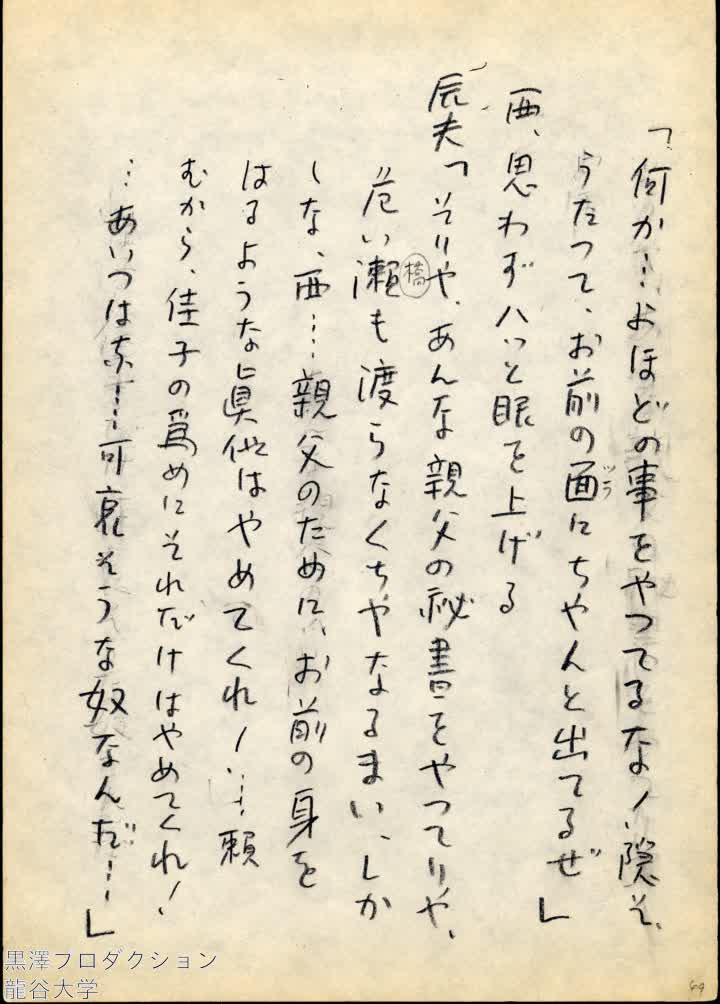 「何か…よほどの事をやつてるな！隠そ
うたつて、お前の面にちやんと出てるぜ」
ツラ
西、思わずハッと眼を上げる
辰夫「そりや、あんな親父の秘書をやつてりや、
危い瀬も渡らなくちやなるまい、しか
橋
しな、西…親父のために、お前の身を
はるような真似はやめてくれ！…頼
むから、佳子の為めにそれだけはやめてくれ！
…あいつは…可哀そうな奴なんだ…」
黒澤プロダクション
龍谷大学
69